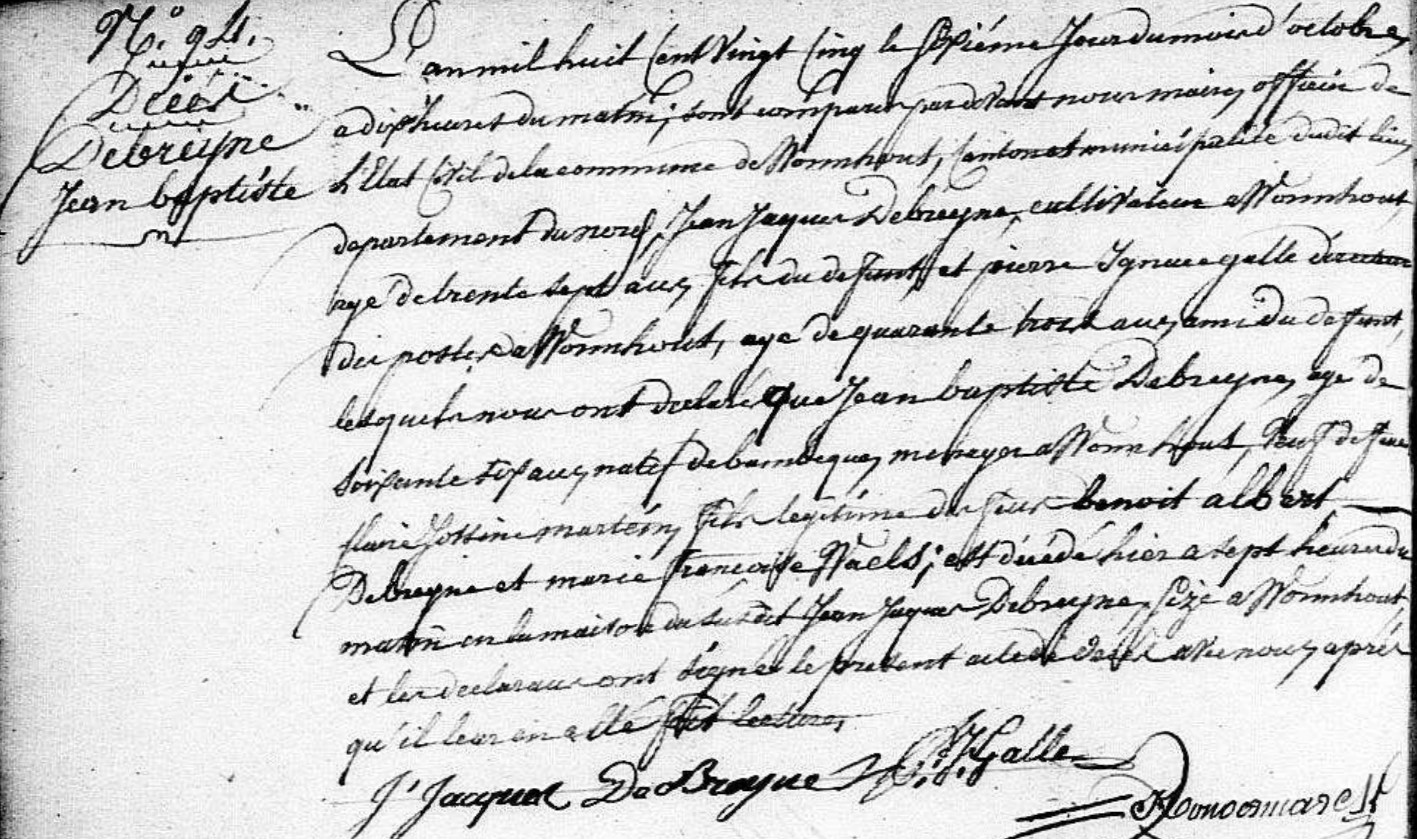 N.° 94.
Décès
Debreyne
Jean baptiste
L'an mil huit Cent Vingt Cinq le Sixiéme Jour du mois d'octobre,
a dix heures du matin, sont comparus pardevant nous maire, officier de
L'Etat Civil de la commune de Wormhout, Canton et municipalité dudit lieu,
departement du nord, Jean Jaques Debreyne, cultivateur a Wormhout,
agé de trente sept ans, fils du defunt, et pierre Ignace galle directeur
des postes a Wormhout, agé de quarante trois ans, ami du defunt,
lesquels nous ont declaré Que Jean baptiste Debreyne, agé de
soixante six ans, natif de bambeque, menager a Wormhout, Veuf de feue
Claire Jossine martein, fils legitime des feus benoit albert
Debreyne et marie françoise Waels; est décédé hier a sept heures du
matin en la maison du susdit Jean Jaques Debreyne, size a Wormhout,
et les declarans ont signé le present acte de décès avec nous, après
qu'il leur en a été fait lecture,
J' Jacques De Breyne P. J. Galle